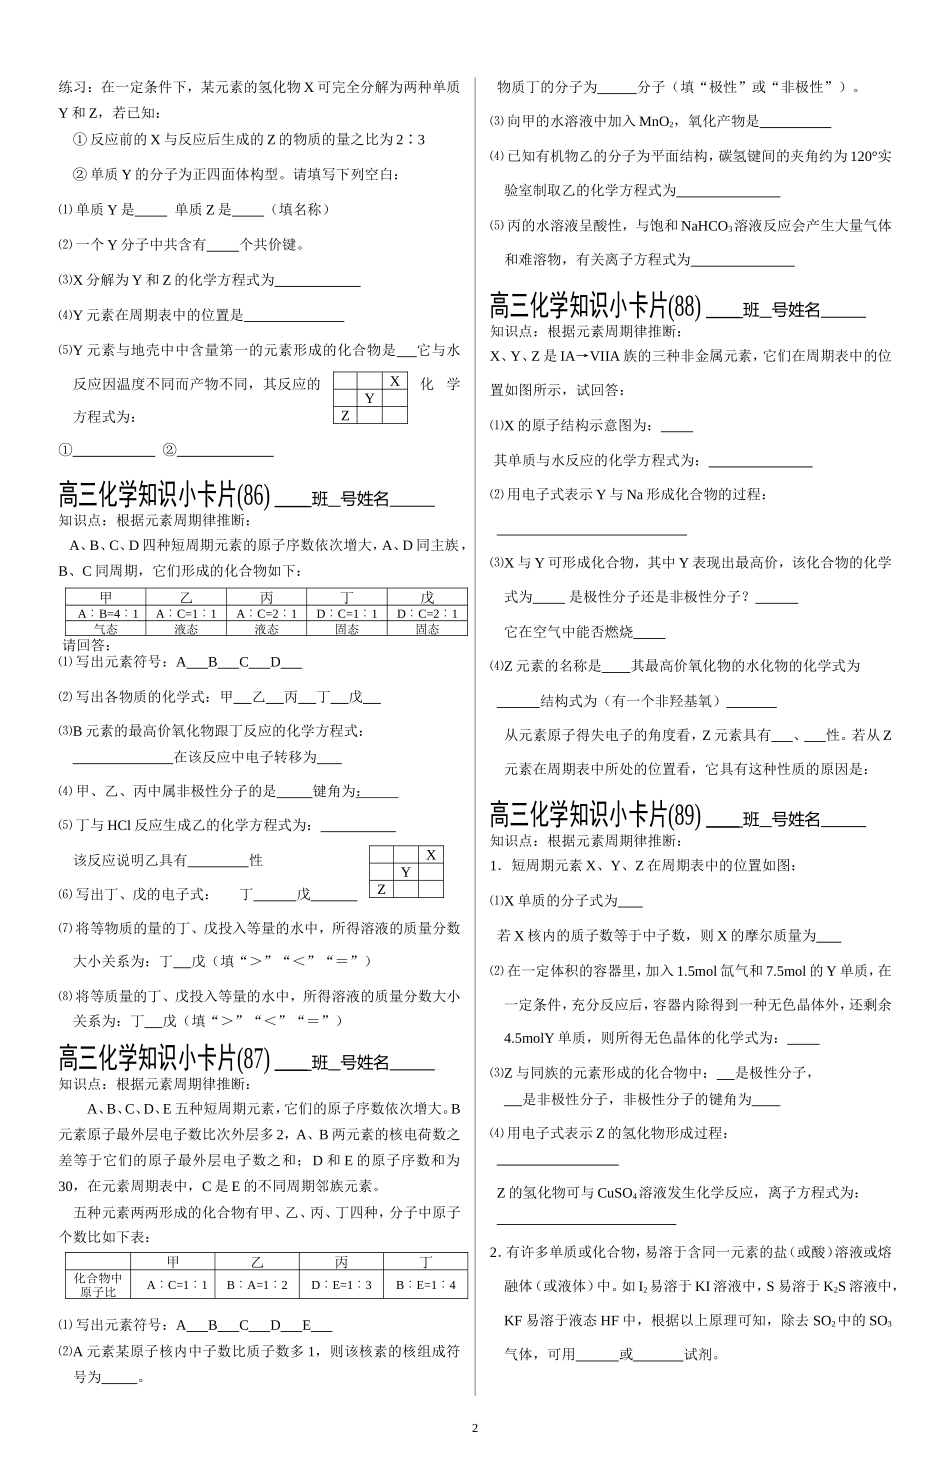 练习：在一定条件下，某元素的氢化物 X 可完全分解为两种单质
Y 和 Z，若已知：
① 反应前的 X 与反应后生成的 Z 的物质的量之比为 2∶3
② 单质 Y 的分子为正四面体构型。请填写下列空白：
⑴ 单质 Y 是____ 单质 Z 是____（填名称）
⑵ 一个 Y 分子中共含有____个共价键。
⑶X 分解为 Y 和 Z 的化学方程式为____________
⑷Y 元素在周期表中的位置是______________
⑸Y 元素与地壳中中含量第一的元素形成的化合物是___它与水
反应因温度不同而产物不同，其反应的 化 学
方程式为：
X
Y
Z
①____________ ②______________
高三化学知识小卡片(86) ____班__号姓名______
知识点：根据元素周期律推断：
A、B、C、D 四种短周期元素的原子序数依次增大，A、D 同主族，
B、C 同周期，它们形成的化合物如下：
甲 乙 丙 丁 戊
A∶B=4∶1 A∶C=1∶1 A∶C=2∶1 D∶C=1∶1 D∶C=2∶1
气态 液态 液态 固态 固态
请回答：
⑴ 写出元素符号：A___B___C___D___
⑵ 写出各物质的化学式：甲__乙__丙__丁__戊__
⑶B 元素的最高价氧化物跟丁反应的化学方程式：
______________在该反应中电子转移为___
⑷ 甲、乙、丙中属非极性分子的是_____键角为:_____
⑸ 丁与 HCl 反应生成乙的化学方程式为：__________
该反应说明乙具有________性
X
Y
Z
⑹ 写出丁、戊的电子式： 丁______戊______
⑺ 将等物质的量的丁、戊投入等量的水中，所得溶液的质量分数
大小关系为：丁__戊（填“＞”“＜”“＝”）
⑻ 将等质量的丁、戊投入等量的水中，所得溶液的质量分数大小
关系为：丁__戊（填“＞”“＜”“＝”）
高三化学知识小卡片(87) ____班__号姓名______
知识点：根据元素周期律推断：
A、B、C、D、E 五种短周期元素，它们的原子序数依次增大。B
元素原子最外层电子数比次外层多 2，A、B 两元素的核电荷数之
差等于它们的原子最外层电子数之和；D 和 E 的原子序数和为
30，在元素周期表中，C 是 E 的不同周期邻族元素。
五种元素两两形成的化合物有甲、乙、丙、丁四种，分子中原子
个数比如下表：
甲 乙 丙 丁
化合物中
原子比 A∶C=1∶1 B∶A=1∶2 D∶E=1∶3 B∶E=1∶4
⑴ 写出元素符号：A___B___C___D___E___
⑵A 元素某原子核内中子数比质子数多 1，则该核素的核组成符
号为_____。
物质丁的分子为_____分子（填“极性”或“非极性”）。
⑶ 向甲的水溶液中加入 MnO₂，氧化产物是__________
⑷ 已知有机物乙的分子为平面结构，碳氢键间的夹角约为 120°实
验室制取乙的化学方程式为______________
⑸ 丙的水溶液呈酸性，与饱和 NaHCO₃ 溶液反应会产生大量气体
和难溶物，有关离子方程式为______________
高三化学知识小卡片(88) ____班__号姓名______
知识点：根据元素周期律推断：
X、Y、Z 是 IA→VIIA 族的三种非金属元素，它们在周期表中的位
置如图所示，试回答：
⑴X 的原子结构示意图为：____
其单质与水反应的化学方程式为：______________
⑵ 用电子式表示 Y 与 Na 形成化合物的过程：
__________________________
⑶X 与 Y 可形成化合物，其中 Y 表现出最高价，该化合物的化学
式为____ 是极性分子还是非极性分子？______
它在空气中能否燃烧____
⑷Z 元素的名称是____其最高价氧化物的水化物的化学式为
______结构式为（有一个非羟基氧）_______
从元素原子得失电子的角度看，Z 元素具有___、___性。若从 Z
元素在周期表中所处的位置看，它具有这种性质的原因是：
高三化学知识小卡片(89) ____班__号姓名______
知识点：根据元素周期律推断：
1．短周期元素 X、Y、Z 在周期表中的位置如图：
⑴X 单质的分子式为___
若 X 核内的质子数等于中子数，则 X 的摩尔质量为___
⑵ 在一定体积的容器里，加入 1.5mol 氙气和 7.5mol 的 Y 单质，在
一定条件，充分反应后，容器内除得到一种无色晶体外，还剩余
4.5molY 单质，则所得无色晶体的化学式为：____
⑶Z 与同族的元素形成的化合物中：__是极性分子，
__是非极性分子，非极性分子的键角为____
⑷ 用电子式表示 Z 的氢化物形成过程：
________________
Z 的氢化物可与 CuSO₄ 溶液发生化学反应，离子方程式为：
________________________
2．有许多单质或化合物，易溶于含同一元素的盐（或酸）溶液或熔
融体（或液体）中。如 I₂ 易溶于 KI 溶液中，S 易溶于 K₂S 溶液中，
KF 易溶于液态 HF 中，根据以上原理可知，除去 SO₂ 中的 SO₃
气体，可用______或_______试剂。
2